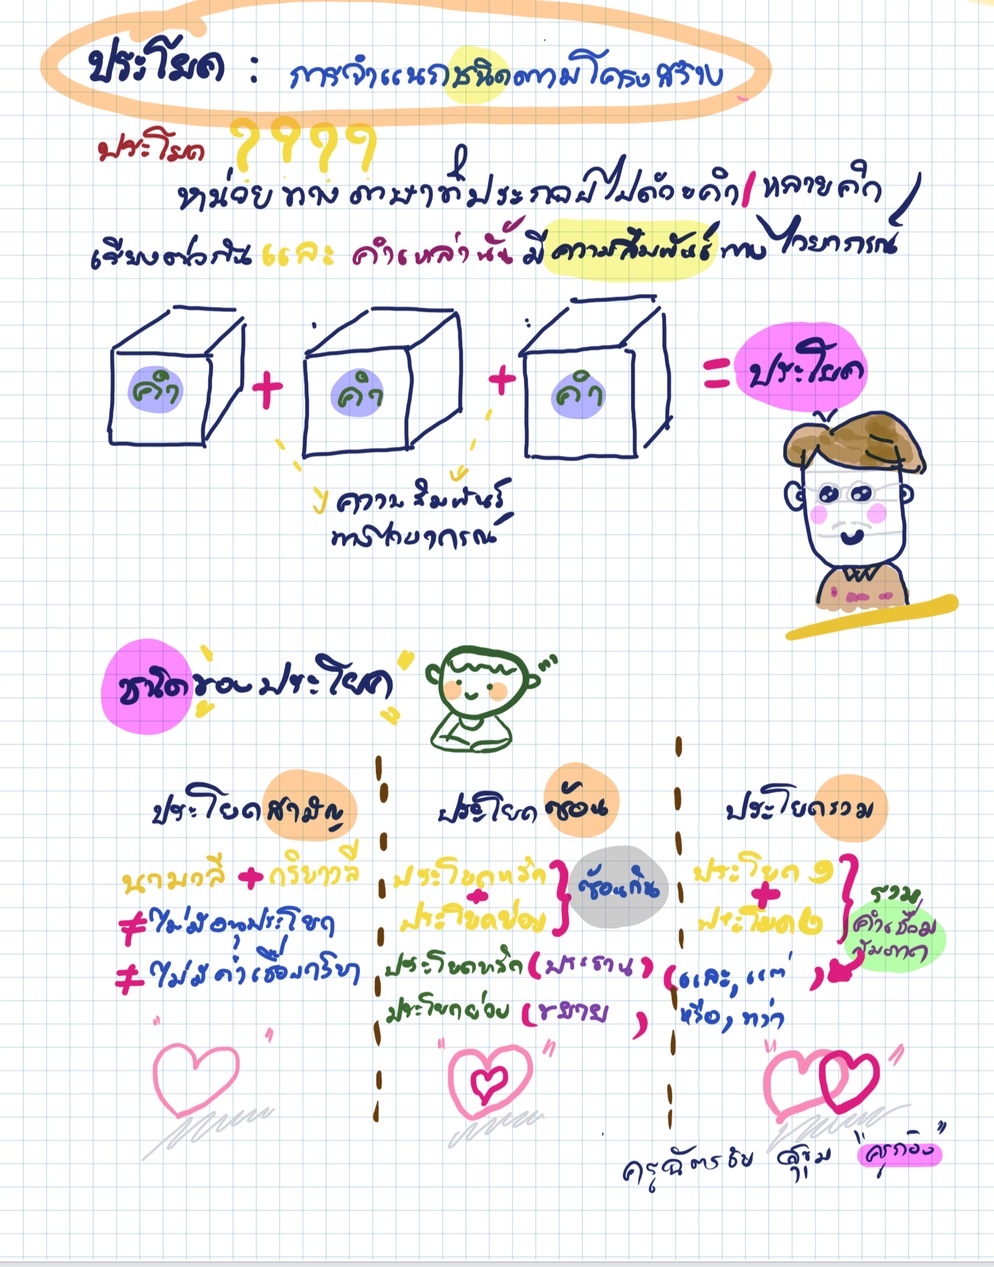 ประโยค : การจำแนกชนิดตามโครงสร้าง
ประโยค ????
หน่วยทางภาษาที่ประกอบไปด้วยคำ/หลายคำ
เรียงต่อกัน และ คำเหล่านั้น มีความสัมพันธ์ทางไวยากรณ์
คำ + คำ + คำ = ประโยค
ความสัมพันธ์
ทางไวยากรณ์
ชนิดของประโยค
ประโยคสามัญ
นามวลี + กริยาวลี
≠ ไม่มีอนุประโยค
≠ ไม่มีคำเชื่อมกริยา
ประโยคซ้อน
ประโยคหลัก
+
ประโยคย่อย
ซ้อนกัน
ประโยคหลัก (ประธาน)
ประโยคย่อย (ขยาย)
ประโยครวม
ประโยค ๑
+
ประโยค ๒
รวม
คำเชื่อม
(และ, แต่
หรือ, ทว่า)
ครูฉัตรชัย "ครูกอิง"